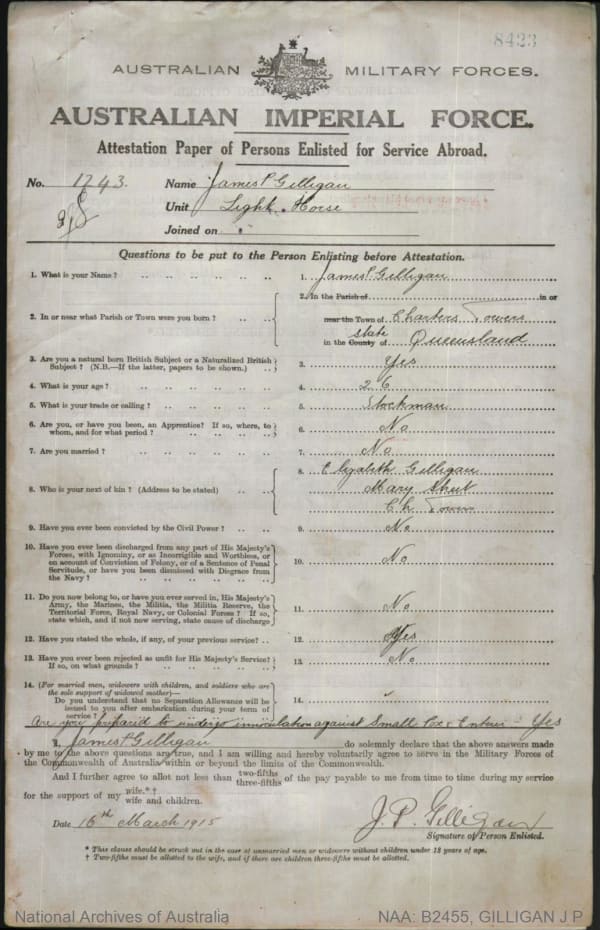 8423
AUSTRALIAN MILITARY FORCES.
AUSTRALIAN IMPERIAL FORCE.
Attestation Paper of Persons Enlisted for Service Abroad.
No. 1243. Name James P Gilligan
Unit Light Horse
Joined on
Questions to be put to the Person Enlisting before Attestation.
1. What is your Name? 1. James P Gilligan
2. In or near what Parish or Town were you born? 2. In the Parish of in or
near the Town of Charters Towers
state
in the County of Queensland
3. Are you a natural born British Subject or a Naturalized British
Subject? (N.B.—If the latter, papers to be shown.) 3. Yes
4. What is your age? 4. 26
5. What is your trade or calling? 5. Stockman
6. Are you, or have you been, an Apprentice? If so, where, to
whom, and for what period? 6. No
7. Are you married? 7. No
8. Who is your next of kin? (Address to be stated) 8. Elizabeth Gilligan
Mary Street
Ch Towers
9. Have you ever been convicted by the Civil Power? 9. No
10. Have you ever been discharged from any part of His Majesty's
Forces, with Ignominy, or as Incorrigible and Worthless, or
on account of Conviction of Felony, or of a Sentence of Penal
Servitude, or have you been dismissed with Disgrace from
the Navy? 10. No
11. Do you now belong to, or have you ever served in, His Majesty's
Army, the Marines, the Militia, the Militia Reserve, the
Territorial Force, Royal Navy, or Colonial Forces? If so,
state which, and if not now serving, state cause of discharge 11. No
12. Have you stated the whole, if any, of your previous service? 12. Yes
13. Have you ever been rejected as unfit for His Majesty's Service?
If so, on what grounds? 13. No
14. (For married men, widowers with children, and soldiers who are
the sole support of widowed mother)—
Do you understand that no Separation Allowance will be
issued to you after embarkation during your term of
service? 14.
Are you prepared to undergo innoculation against Small Pox & Enteric - Yes
I, James P Gilligan do solemnly declare that the above answers made
by me to the above questions are true, and I am willing and hereby voluntarily agree to serve in the Military Forces of
the Commonwealth of Australia within or beyond the limits of the Commonwealth.
And I further agree to allot not less than two-fifths three-fifths of the pay payable to me from time to time during my service
for the support of my wife.*† wife and children.
Date 16th March 1915 J. P. Gilligan
Signature of Person Enlisted.
* This clause should be struck out in the case of unmarried men or widowers without children under 18 years of age.
† Two-fifths must be allotted to the wife, and if there are children three-fifths must be allotted.
National Archives of Australia NAA: B2455, GILLIGAN J P